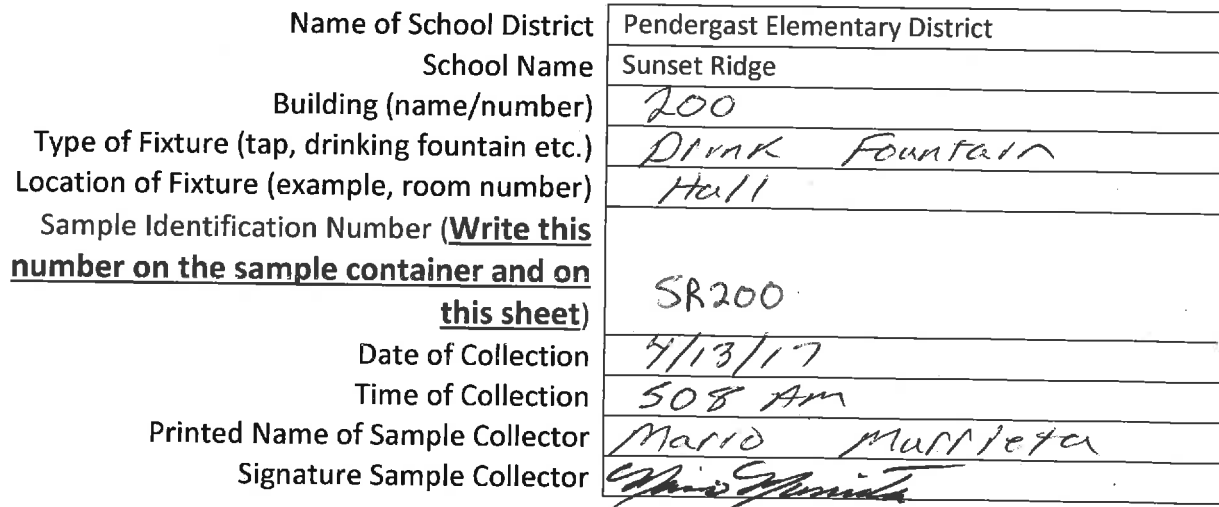 Name of School District Pendergast Elementary District
School Name Sunset Ridge
Building (name/number) 200
Type of Fixture (tap, drinking fountain etc.) Drink Fountain
Location of Fixture (example, room number) Hall
Sample Identification Number (Write this
number on the sample container and on
this sheet) SR200
Date of Collection 4/13/17
Time of Collection 508 Am
Printed Name of Sample Collector Mario Murrieta
Signature Sample Collector Mario Murrieta